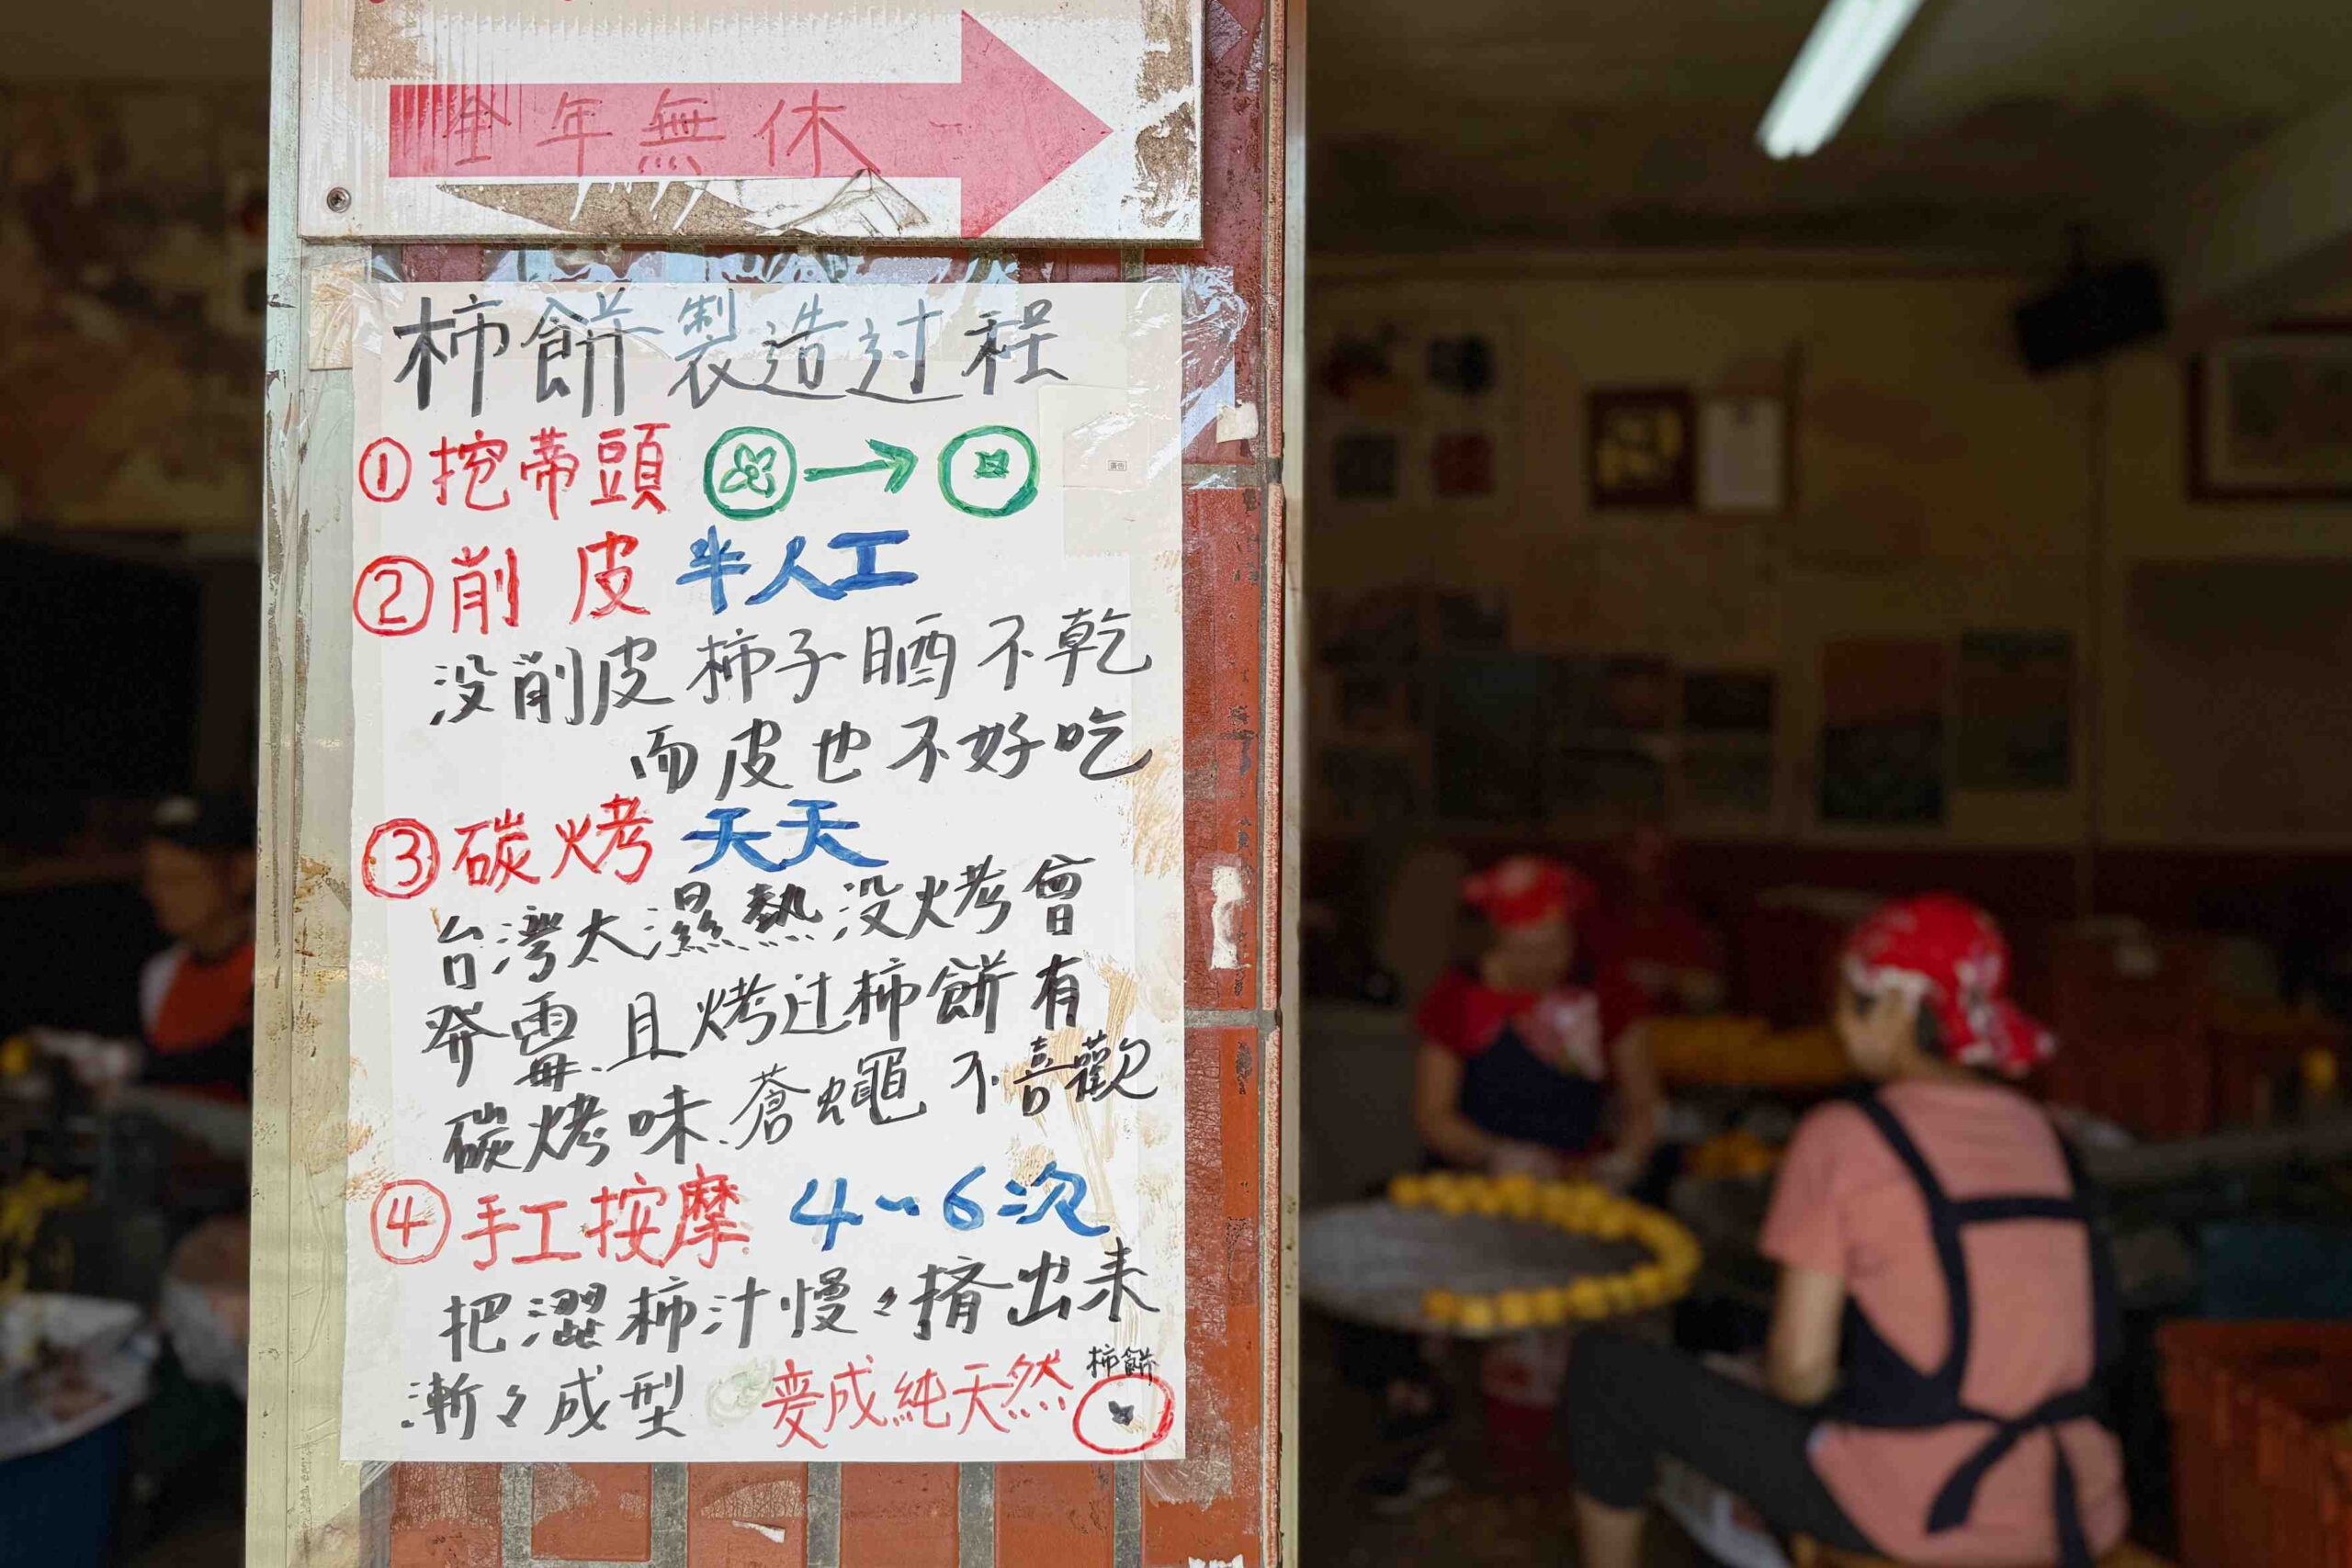 全年無休
柿餅製造过程
①挖蒂頭
②削皮 半人工
没削皮柿子晒不乾
而皮也不好吃
③碳烤 天天
台灣太濕熱没烤會
発霉.且烤过柿餅有
碳烤味.蒼蠅不喜歡
④手工按摩 4~6次
把澀柿汁慢々擠出来
漸々成型 变成純天然 柿餅